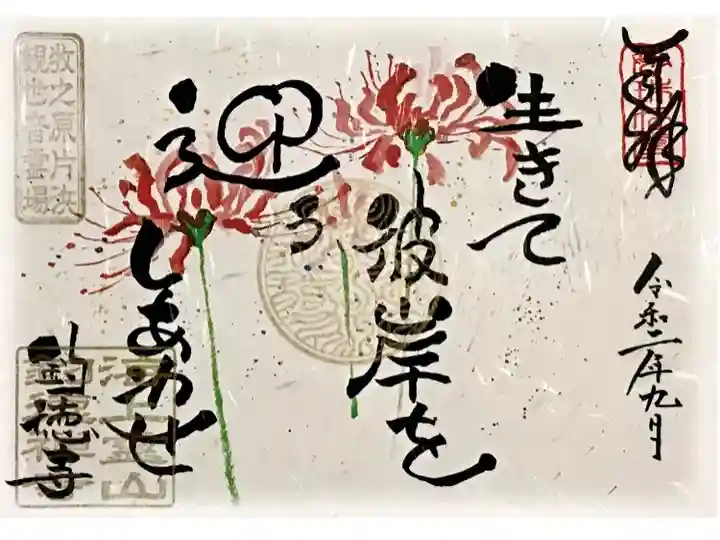 奉拝
令和二年九月
生きて
彼岸を
迎える
しあわせ
釣徳寺
牧之原片次
観世音霊場